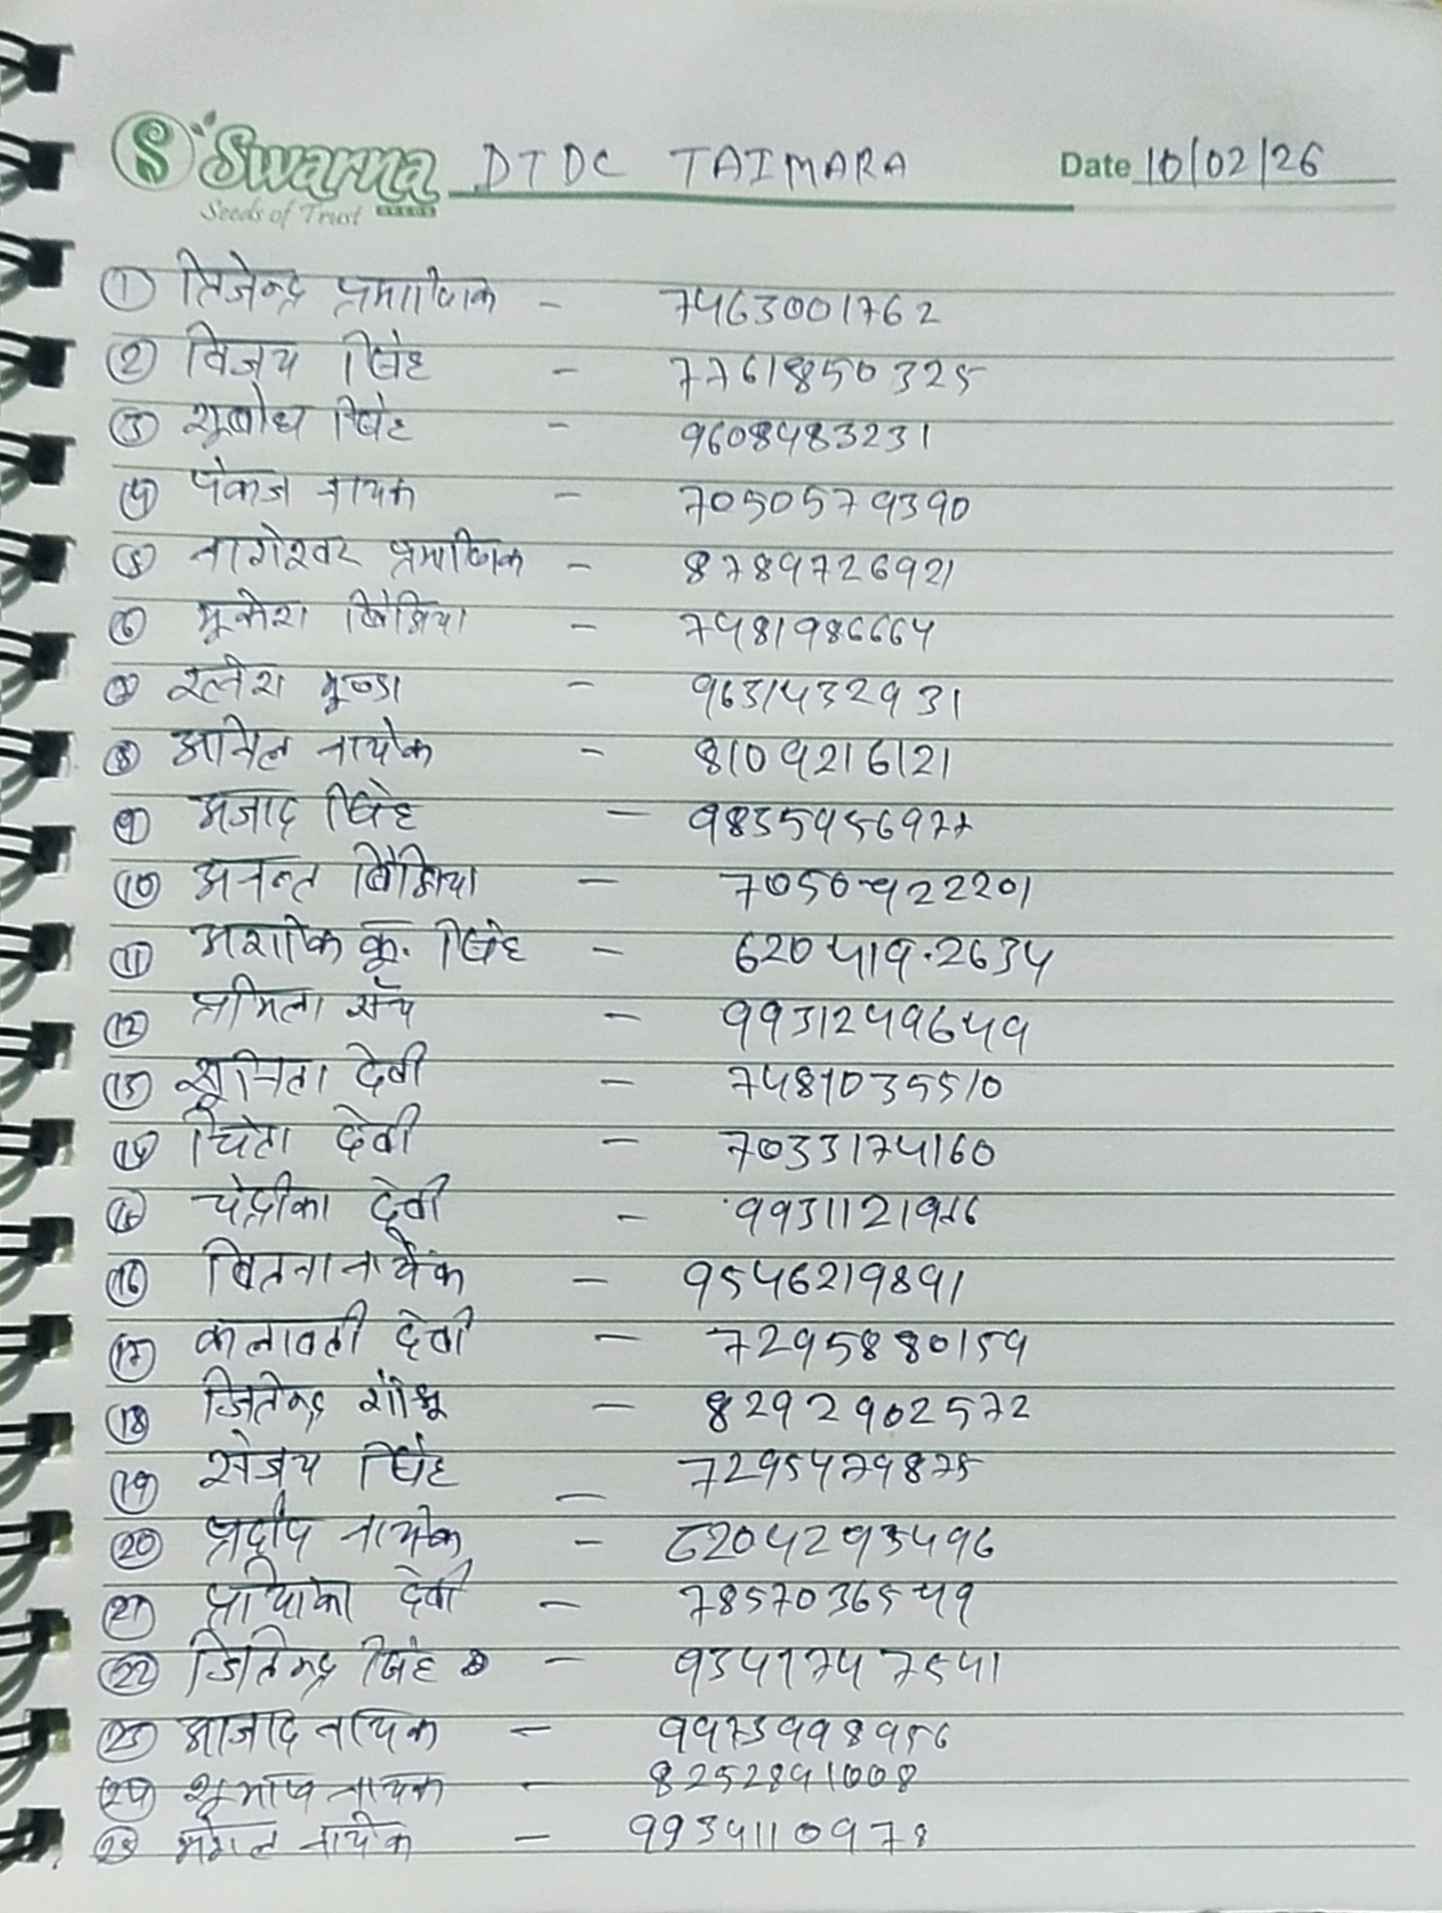 Swarna DTDC TAIMARA Date 10/02/26
Seeds of Trust SEEDS
① प्रमाणिक - 7463001762
② विजय सिंह - 7761850325
③ सूबोध सिंह - 9608483231
④ पंकज नायक - 7050579390
⑤ नागेश्वर प्रमाणिक - 8789726921
⑥ मूकेश - 7481986664
⑦ मूण्डा - 9631432931
⑧ अनिल नायेक - 8109216121
⑨ अजाद सिंह -
⑩ अनन्त - 7050922201
⑪ अशोक कू. सिंह - 620419.2634
⑫ प्रमिला - 9931249649
⑬ सूनिता देवी - 7481035510
⑭ चिंता देवी - 7033174160
⑮ चंद्रीका देवी -
⑯ नायेक - 9546219891
⑰ कलावती देवी - 7295880159
⑱ जितेन्द्र - 8292902572
⑲ संजय सिंह - 7295479875
⑳ प्रदीप नायेक - 6204293496
㉑ देवी - 7857036549
㉒ जितेन्द्र सिंह - 9341747541
㉓ आजाद नायक - 9973998956
㉔ सूभाष नायक - 8252891008
㉕ मंगल नायेक - 9934110978